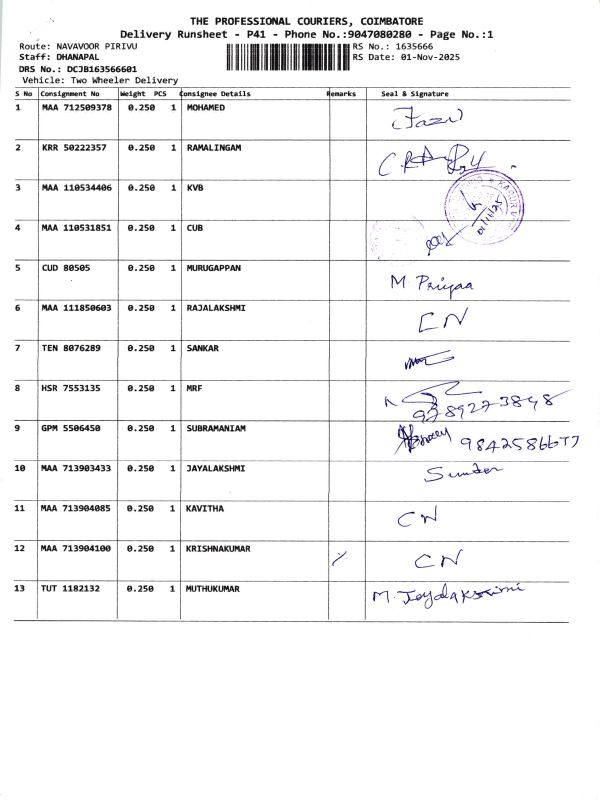 THE PROFESSIONAL COURIERS, COIMBATORE
Delivery Runsheet - P41 - Phone No.:9047080280 - Page No.:1
Route: NAVAVOOR PIRIVU RS No.: 1635666
Staff: DHANAPAL RS Date: 01-Nov-2025
DRS No.: DCJB163566601
Vehicle: Two Wheeler Delivery
S No Consignment No Weight PCS Consignee Details Remarks Seal & Signature
1 MAA 712509378 0.250 1 MOHAMED Fazil
2 KRR 50222357 0.250 1 RAMALINGAM
3 MAA 110534406 0.250 1 KVB
4 MAA 110531851 0.250 1 CUB
5 CUD 80505 0.250 1 MURUGAPPAN M. Priyaa
6 MAA 111850603 0.250 1 RAJALAKSHMI CN
7 TEN 8076289 0.250 1 SANKAR
8 HSR 7553135 0.250 1 MRF
9 GPM 5506450 0.250 1 SUBRAMANIAM
10 MAA 713903433 0.250 1 JAYALAKSHMI Sunder
11 MAA 713904085 0.250 1 KAVITHA CN
12 MAA 713904100 0.250 1 KRISHNAKUMAR CN
13 TUT 1182132 0.250 1 MUTHUKUMAR M.